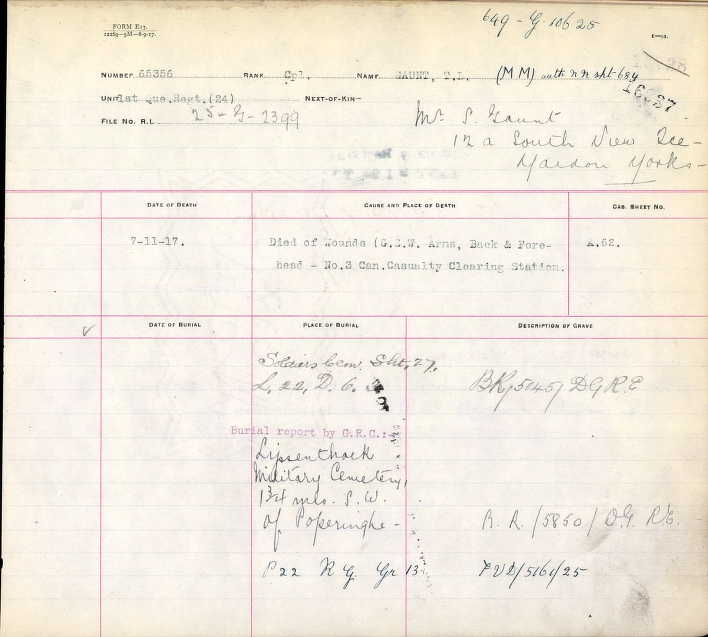 649-G-10625
FORM E17.
12269-5M-8-9-17.
NUMBER 65356 RANK Cpl. NAME GAUNT, T.L. (MM) auth N N sht 684
UNIT 1st Que.Regt.(24) NEXT-OF-KIN—
FILE NO. R.L. 25-G-2399
Mr. S. Gaunt
12 a South View Tce-
Yeadon Yorks-
DATE OF DEATH CAUSE AND PLACE OF DEATH CAS. SHEET NO.
7-11-17. Died of Wounds (G.S.W. Arms, Back & Fore- A.62.
head - No.3 Can.Casualty Clearing Station.
DATE OF BURIAL PLACE OF BURIAL DESCRIPTION OF GRAVE
Soldiers Cem. Sht. 27.
L. 22, D. 6. BR/5145/ DGR.E
Burial report by G.R.C.:-
Lijssenthoek
Military Cemetery,
1¾ mls. S.W.
of Poperinghe- B.R./5860/D.G.R.E.
P22 R G. Gr 13